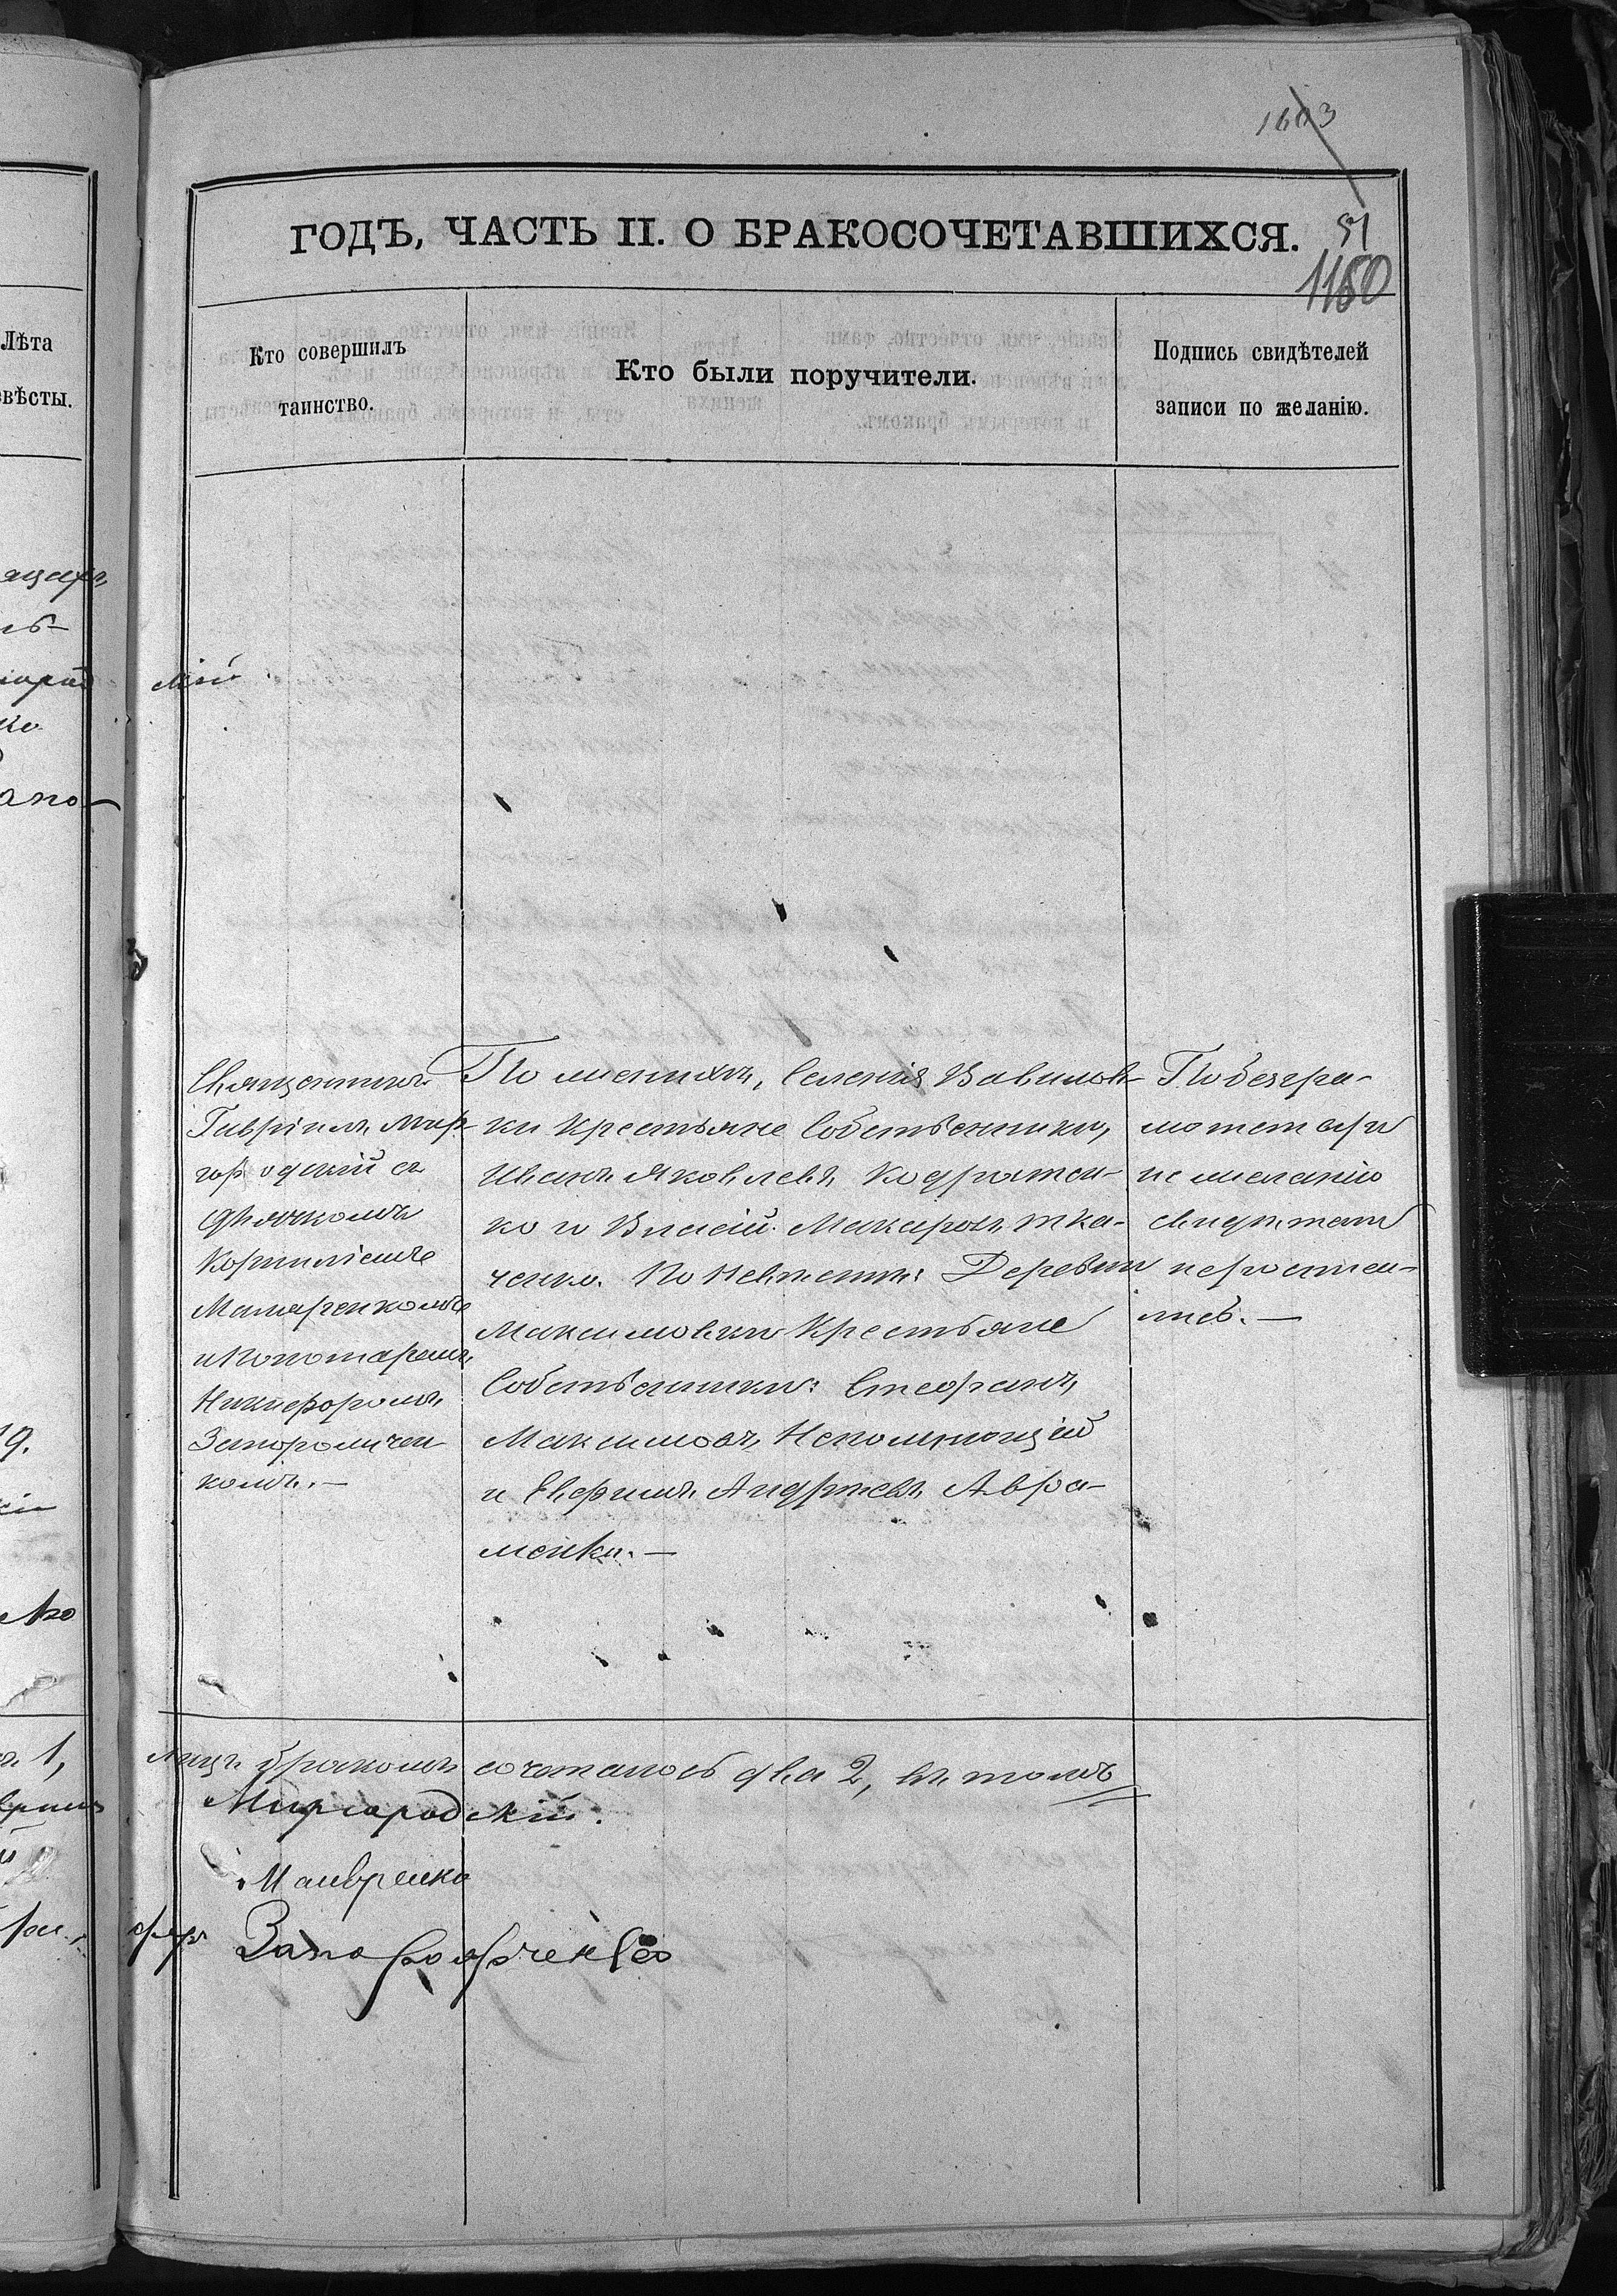 1603
ГОДЪ, ЧАСТЬ II. О БРАКОСОЧЕТАВШИХСЯ.
51
1150
Лѣта
вѣсты.
Кто совершилъ
таинство.
Кто были поручители.
Подпись свидѣтелей
записи по желанію.
Священникъ
Гавріилъ Мир-
городскій съ
дьячкомъ
Корниліемъ
и пономаремъ
Никифоромъ
Запорожчен
комъ. —
По женихѣ, Селенія Вавилов-
ки Крестьяне Собственники,
Иванъ Яковлевъ Кодратен-
ко и Власій Макаровъ Тка-
ченко. По невѣстѣ: Деревни
Максимовки Крестьяне
Собственники: Стефанъ
Максимовъ Непомнющій
и Евфимъ Андреевъ Авра-
менко. —
По безгра-
мотству и
не желанію
свидѣтели
не росписа-
лись. —
лицъ бракомъ сочеталось два 2, въ томъ
Миргородскій.
Запорожченко